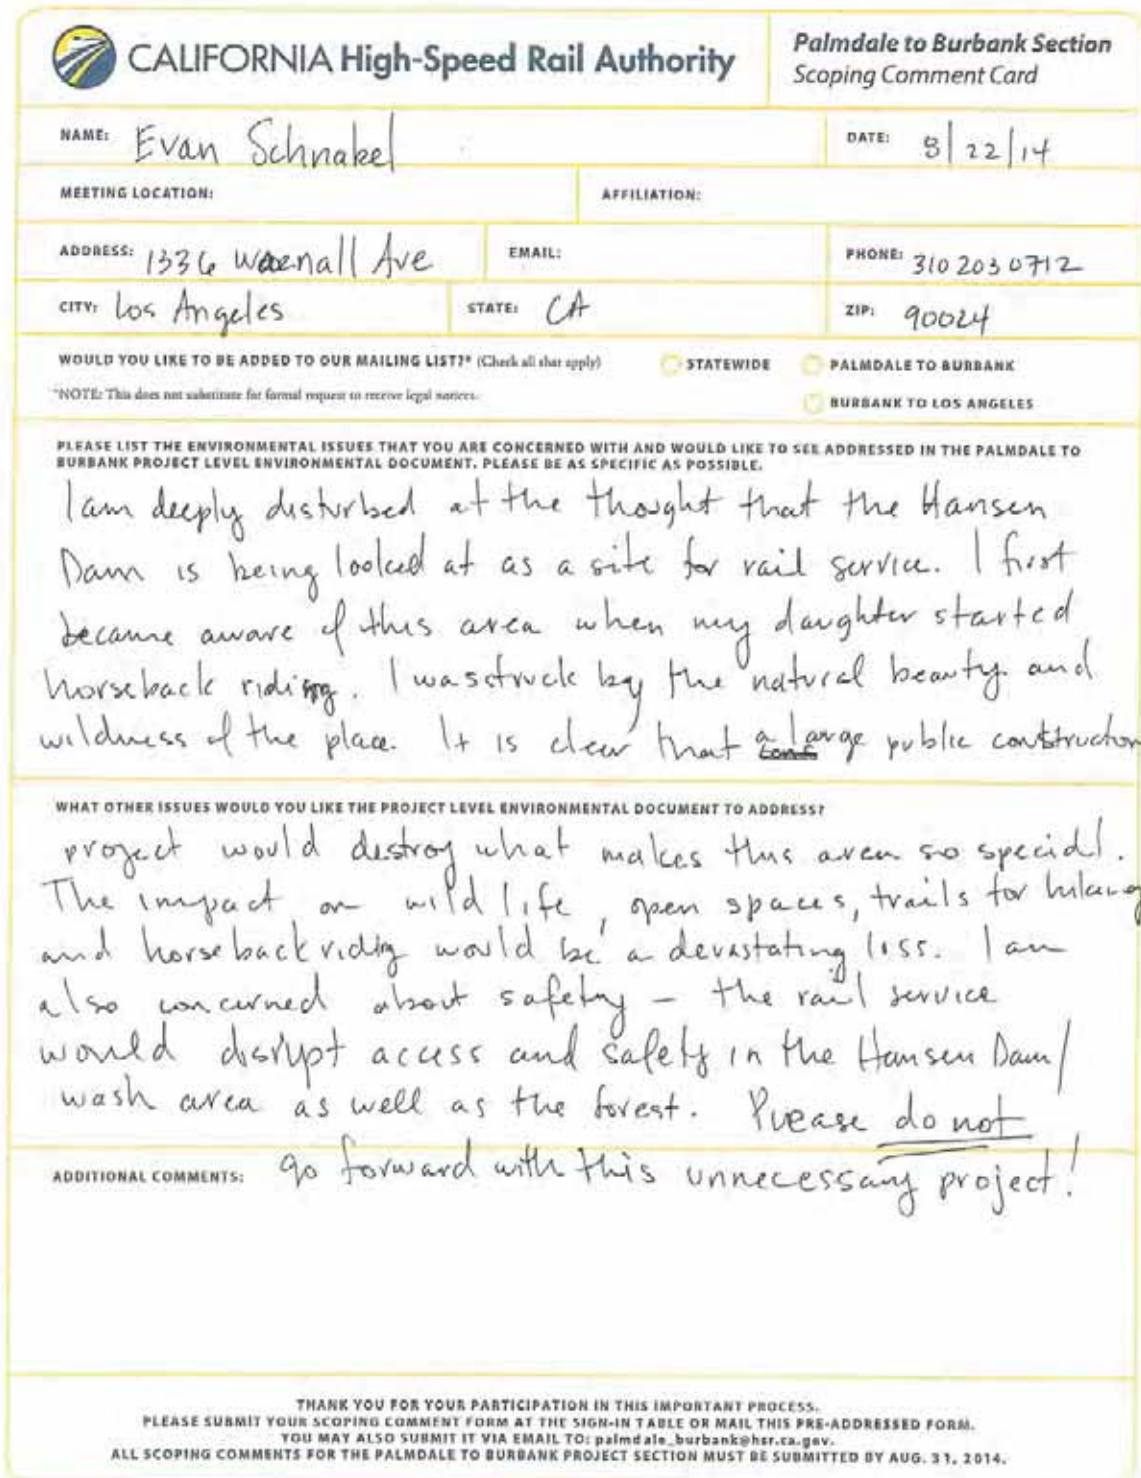 CALIFORNIA High-Speed Rail Authority
Palmdale to Burbank Section
Scoping Comment Card
NAME: Evan Schnabel
DATE: 8/22/14
MEETING LOCATION:
AFFILIATION:
ADDRESS: 1336 Warnall Ave
EMAIL:
PHONE: 310 203 0712
CITY: Los Angeles
STATE: CA
ZIP: 90024
WOULD YOU LIKE TO BE ADDED TO OUR MAILING LIST?* (Check all that apply)
STATEWIDE
PALMDALE TO BURBANK
*NOTE: This does not substitute for formal request to receive legal notices.
BURBANK TO LOS ANGELES
PLEASE LIST THE ENVIRONMENTAL ISSUES THAT YOU ARE CONCERNED WITH AND WOULD LIKE TO SEE ADDRESSED IN THE PALMDALE TO
BURBANK PROJECT LEVEL ENVIRONMENTAL DOCUMENT. PLEASE BE AS SPECIFIC AS POSSIBLE.
I am deeply disturbed at the thought that the Hansen
Dam is being looked at as a site for rail service. I first
became aware of this area when my daughter started
horseback riding. I was struck by the natural beauty and
wildness of the place. It is clear that a large public construction
WHAT OTHER ISSUES WOULD YOU LIKE THE PROJECT LEVEL ENVIRONMENTAL DOCUMENT TO ADDRESS?
project would destroy what makes this area so special.
The impact on wild life, open spaces, trails for hiking
and horseback riding would be a devastating loss. I am
also concerned about safety – the rail service
would disrupt access and safety in the Hansen Dam/
wash area as well as the forest. Please do not
ADDITIONAL COMMENTS: go forward with this unnecessary project!
THANK YOU FOR YOUR PARTICIPATION IN THIS IMPORTANT PROCESS.
PLEASE SUBMIT YOUR SCOPING COMMENT FORM AT THE SIGN-IN TABLE OR MAIL THIS PRE-ADDRESSED FORM.
YOU MAY ALSO SUBMIT IT VIA EMAIL TO: palmdale_burbank@hsr.ca.gov.
ALL SCOPING COMMENTS FOR THE PALMDALE TO BURBANK PROJECT SECTION MUST BE SUBMITTED BY AUG. 31, 2014.